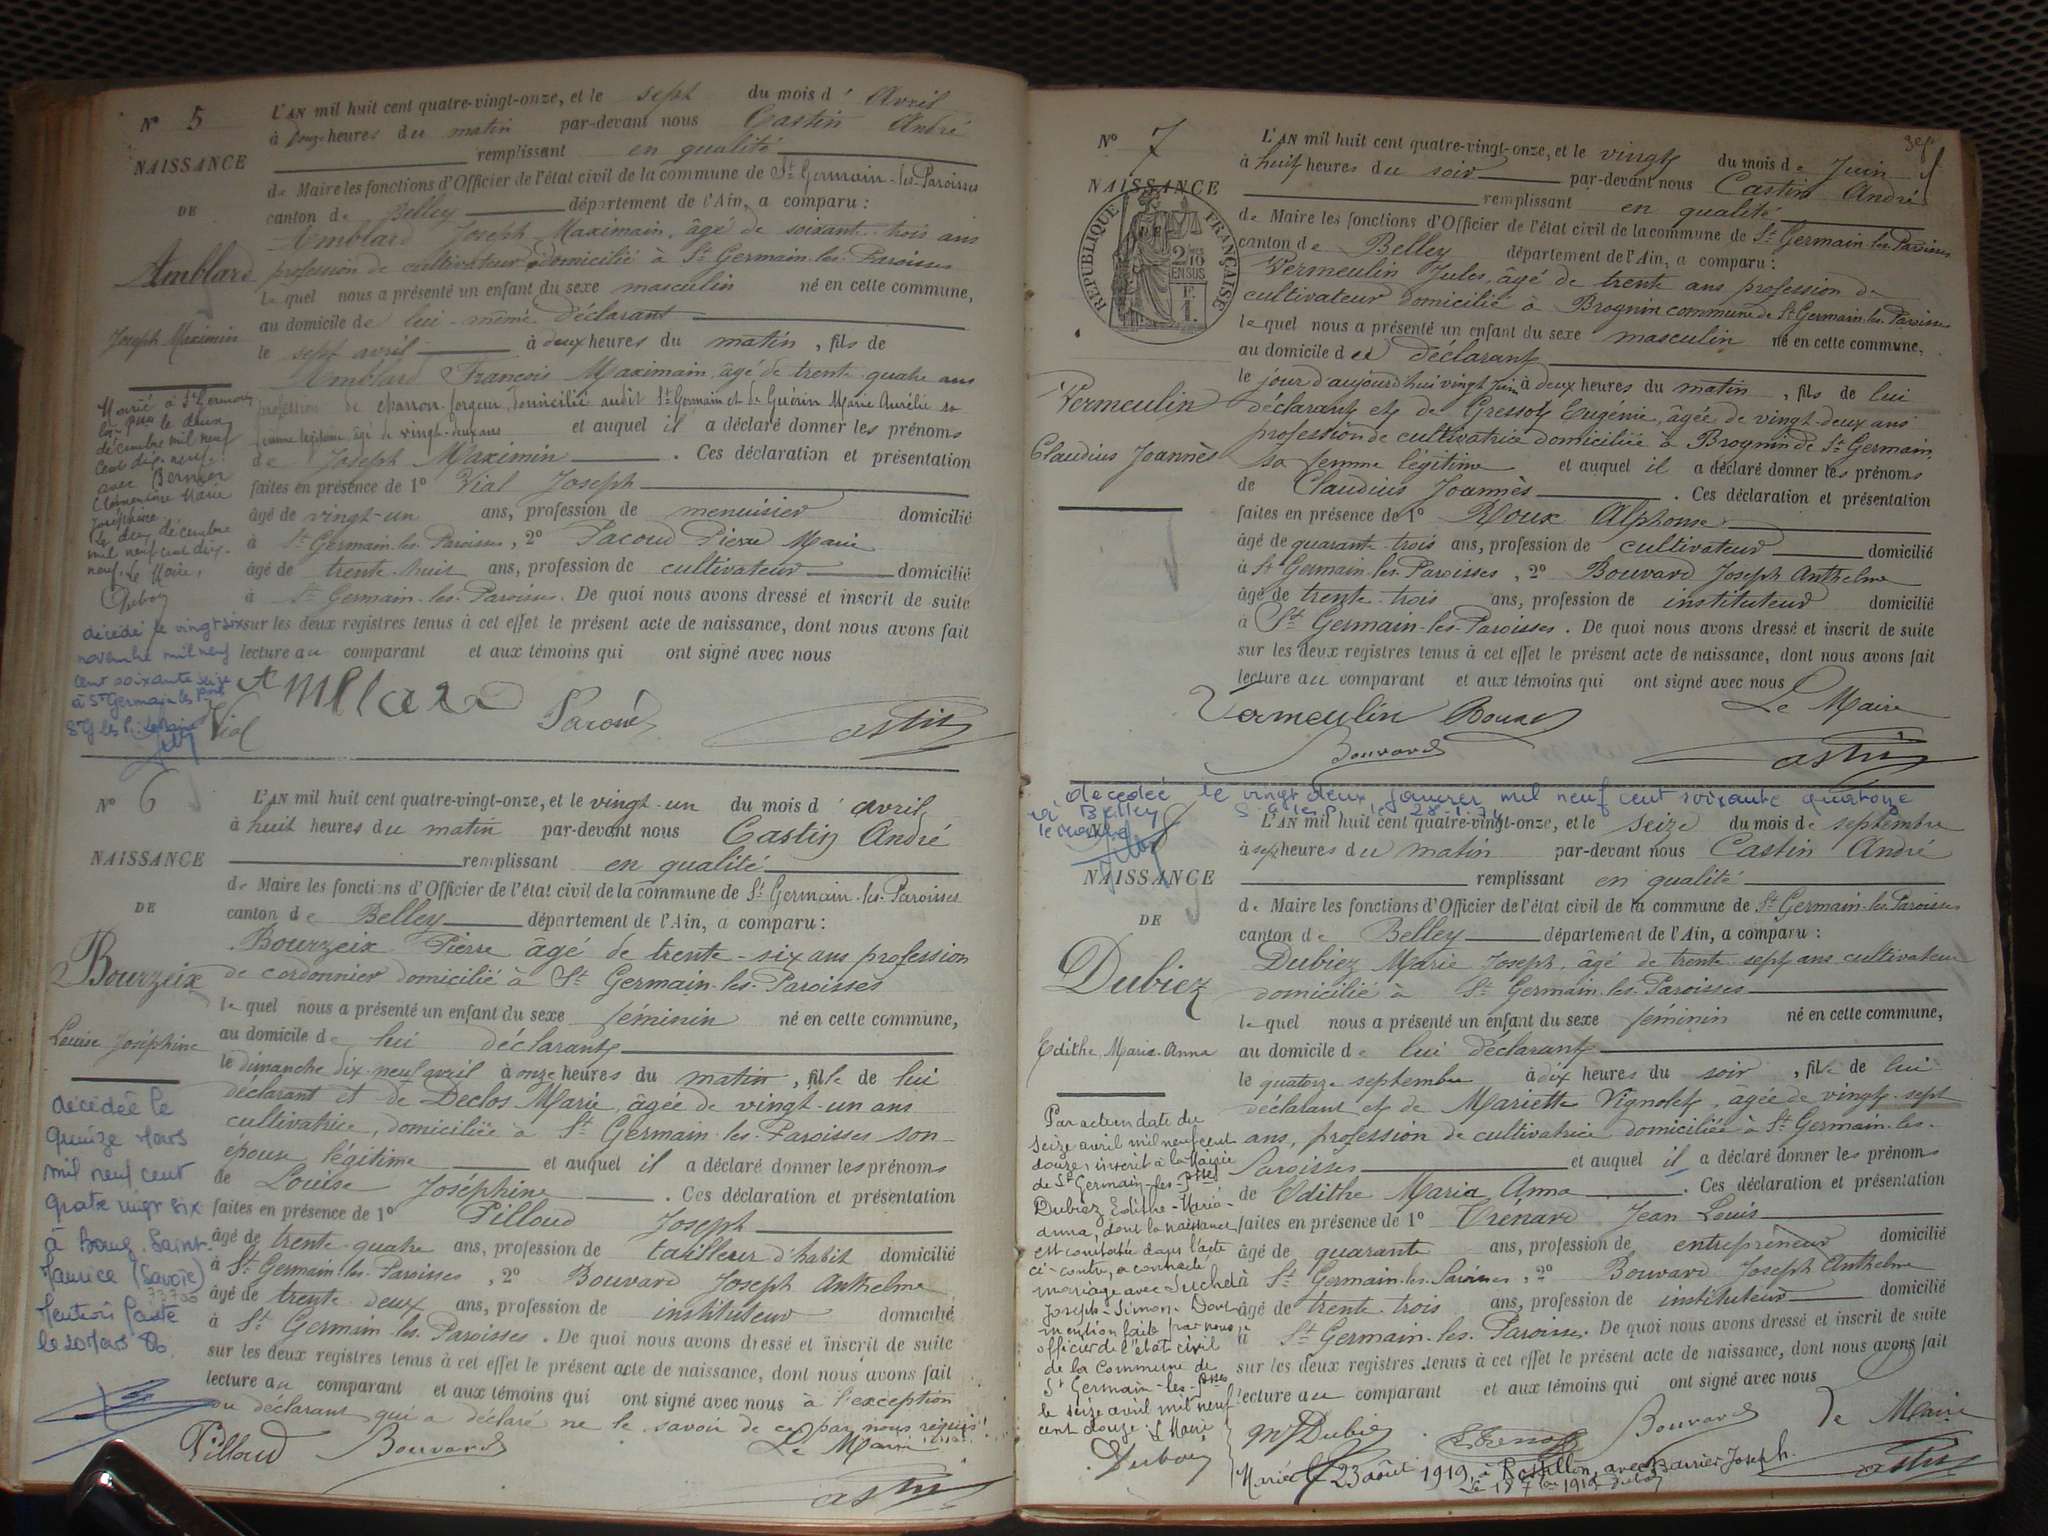 N° 5
NAISSANCE
DE
Amblard
Joseph Maximin
Marié à St Germain
les Pses le deux
décembre mil neuf
cent dix-neuf
avec Bernier
Clémentine Marie
Joséphine
le deux décembre
mil neuf cent dix-
neuf. Le Maire,
Duboy
décédé le vingt six
novembre mil neuf
cent soixante seize
à St Germain les
L'AN mil huit cent quatre-vingt-onze, et le sept du mois d' Avril
à onze heures du matin par-devant nous Castin André
remplissant en qualité
de Maire les fonctions d'Officier de l'état civil de la commune de St Germain-les-Paroisses
canton de Belley département de l'Ain, a comparu :
Amblard Joseph Maximain, âgé de soixante-trois ans
profession de cultivateur domicilié à St Germain-les-Paroisses
lequel nous a présenté un enfant du sexe masculin né en cette commune,
au domicile de lui-même déclarant
le sept avril à deux heures du matin, fils de
Amblard François Maximain, âgé de trente-quatre ans
profession de charron-forgeur, domicilié audit St Germain et de Guérin Marie Aurélie sa
femme légitime, âgé de vingt-deux ans et auquel il a déclaré donner les prénoms
de Joseph Maximin. Ces déclaration et présentation
faites en présence de 1° Vial Joseph
âgé de vingt-un ans, profession de menuisier domicilié
à St Germain-les-Paroisses, 2° Pacoud Pierre Marie
âgé de trente-huit ans, profession de cultivateur domicilié
à St Germain-les-Paroisses. De quoi nous avons dressé et inscrit de suite
sur les deux registres tenus à cet effet le présent acte de naissance, dont nous avons fait
lecture au comparant et aux témoins qui ont signé avec nous
Amblard
Vial Pacoud Castin
N° 6
NAISSANCE
DE
Bourzeix
Louise Joséphine
décédée le
quinze Mars
mil neuf cent
quatre vingt six
à Bourg-Saint-
Maurice (Savoie)
73700
Mention faite
le 20 Mars 86.
L'AN mil huit cent quatre-vingt-onze, et le vingt-un du mois d' avril
à huit heures du matin par-devant nous Castin André
remplissant en qualité
de Maire les fonctions d'Officier de l'état civil de la commune de St Germain-les-Paroisses
canton de Belley département de l'Ain, a comparu :
Bourzeix Pierre âgé de trente-six ans profession
de cordonnier domicilié à St Germain-les-Paroisses
lequel nous a présenté un enfant du sexe féminin né en cette commune,
au domicile de lui déclarant
le dimanche dix-neuf avril à onze heures du matin, fille de lui
déclarant et de Declos Marie, âgée de vingt-un ans
cultivatrice, domiciliée à St Germain-les-Paroisses son
épouse légitime et auquel il a déclaré donner les prénoms
de Louise Joséphine. Ces déclaration et présentation
faites en présence de 1° Pilloud Joseph
âgé de trente-quatre ans, profession de tailleur d'habit domicilié
à St Germain-les-Paroisses, 2° Bouvard Joseph Anthelme
âgé de trente-deux ans, profession de instituteur domicilié
à St Germain-les-Paroisses. De quoi nous avons dressé et inscrit de suite
sur les deux registres tenus à cet effet le présent acte de naissance, dont nous avons fait
lecture au comparant et aux témoins qui ont signé avec nous à l'exception
du déclarant qui a déclaré ne le savoir de ce par nous requis.
Le Maire
Pilloud Bouvard Castin
N° 7
NAISSANCE
RÉPUBLIQUE FRANÇAISE
2/10 EN SUS
Vermeulin
Claudius Joannès
L'AN mil huit cent quatre-vingt-onze, et le vingt du mois de Juin
à huit heures du soir par-devant nous Castin André
remplissant en qualité
de Maire les fonctions d'Officier de l'état civil de la commune de St Germain-les-Paroisses
canton de Belley département de l'Ain, a comparu :
Vermeulin Jules, âgé de trente ans profession de
cultivateur domicilié à Brognin commune de St Germain-les-Paroisses
lequel nous a présenté un enfant du sexe masculin né en cette commune,
au domicile du déclarant
le jour d'aujourd'hui vingt Juin à deux heures du matin, fils de lui
déclarant et de Gressot Eugénie, âgée de vingt-deux ans
profession de cultivatrice domiciliée à Brognin de St Germain,
sa femme légitime et auquel il a déclaré donner les prénoms
de Claudius Joannès. Ces déclaration et présentation
faites en présence de 1° Roux Alphonse
âgé de quarante-trois ans, profession de cultivateur domicilié
à St Germain-les-Paroisses, 2° Bouvard Joseph Anthelme
âgé de trente-trois ans, profession de instituteur domicilié
à St Germain-les-Paroisses. De quoi nous avons dressé et inscrit de suite
sur les deux registres tenus à cet effet le présent acte de naissance, dont nous avons fait
lecture au comparant et aux témoins qui ont signé avec nous
Le Maire
Vermeulin
Bouvard Castin
décédée le vingt deux janvier mil neuf cent soixante quatorze
à Belley
NAISSANCE
DE
Dubiez
Edithe, Maria-Anna
Par acte en date du
seize avril mil neuf cent
douze, inscrit à la Mairie
de St Germain-les-Psses
Dubiez Edithe-Maria-
Anna, dont la naissance
est constatée dans l'acte
ci-contre, a contracté
mariage avec Luchet
Joseph-Simon. Dont
mention faite par nous
officier de l'état civil
de la Commune de
St Germain-les-Psses
le seize avril mil neuf
cent douze. Le Maire
Duboy
L'AN mil huit cent quatre-vingt-onze, et le seize du mois de septembre
à sept heures du matin par-devant nous Castin André
remplissant en qualité
de Maire les fonctions d'Officier de l'état civil de la commune de St Germain-les-Paroisses
canton de Belley département de l'Ain, a comparu :
Dubiez Marie Joseph, âgé de trente-sept ans cultivateur
domicilié à St Germain-les-Paroisses
lequel nous a présenté un enfant du sexe féminin né en cette commune,
au domicile de lui déclarant
le quatorze septembre à dix heures du soir, fille de lui
déclarant et de Mariette Vignolet, âgée de vingt-sept
ans, profession de cultivatrice domiciliée à St Germain-les-
Paroisses et auquel il a déclaré donner les prénoms
de Edithe Maria Anna. Ces déclaration et présentation
faites en présence de 1° Trénard Jean Louis
âgé de quarante ans, profession de entrepreneur domicilié
à St Germain-les-Paroisses, 2° Bouvard Joseph Anthelme
âgé de trente-trois ans, profession de instituteur domicilié
à St Germain-les-Paroisses. De quoi nous avons dressé et inscrit de suite
sur les deux registres tenus à cet effet le présent acte de naissance, dont nous avons fait
lecture au comparant et aux témoins qui ont signé avec nous
Bouvard Le Maire
Castin
Mariée le 23 août 1919, à Rossillon, avec Barrier Joseph.